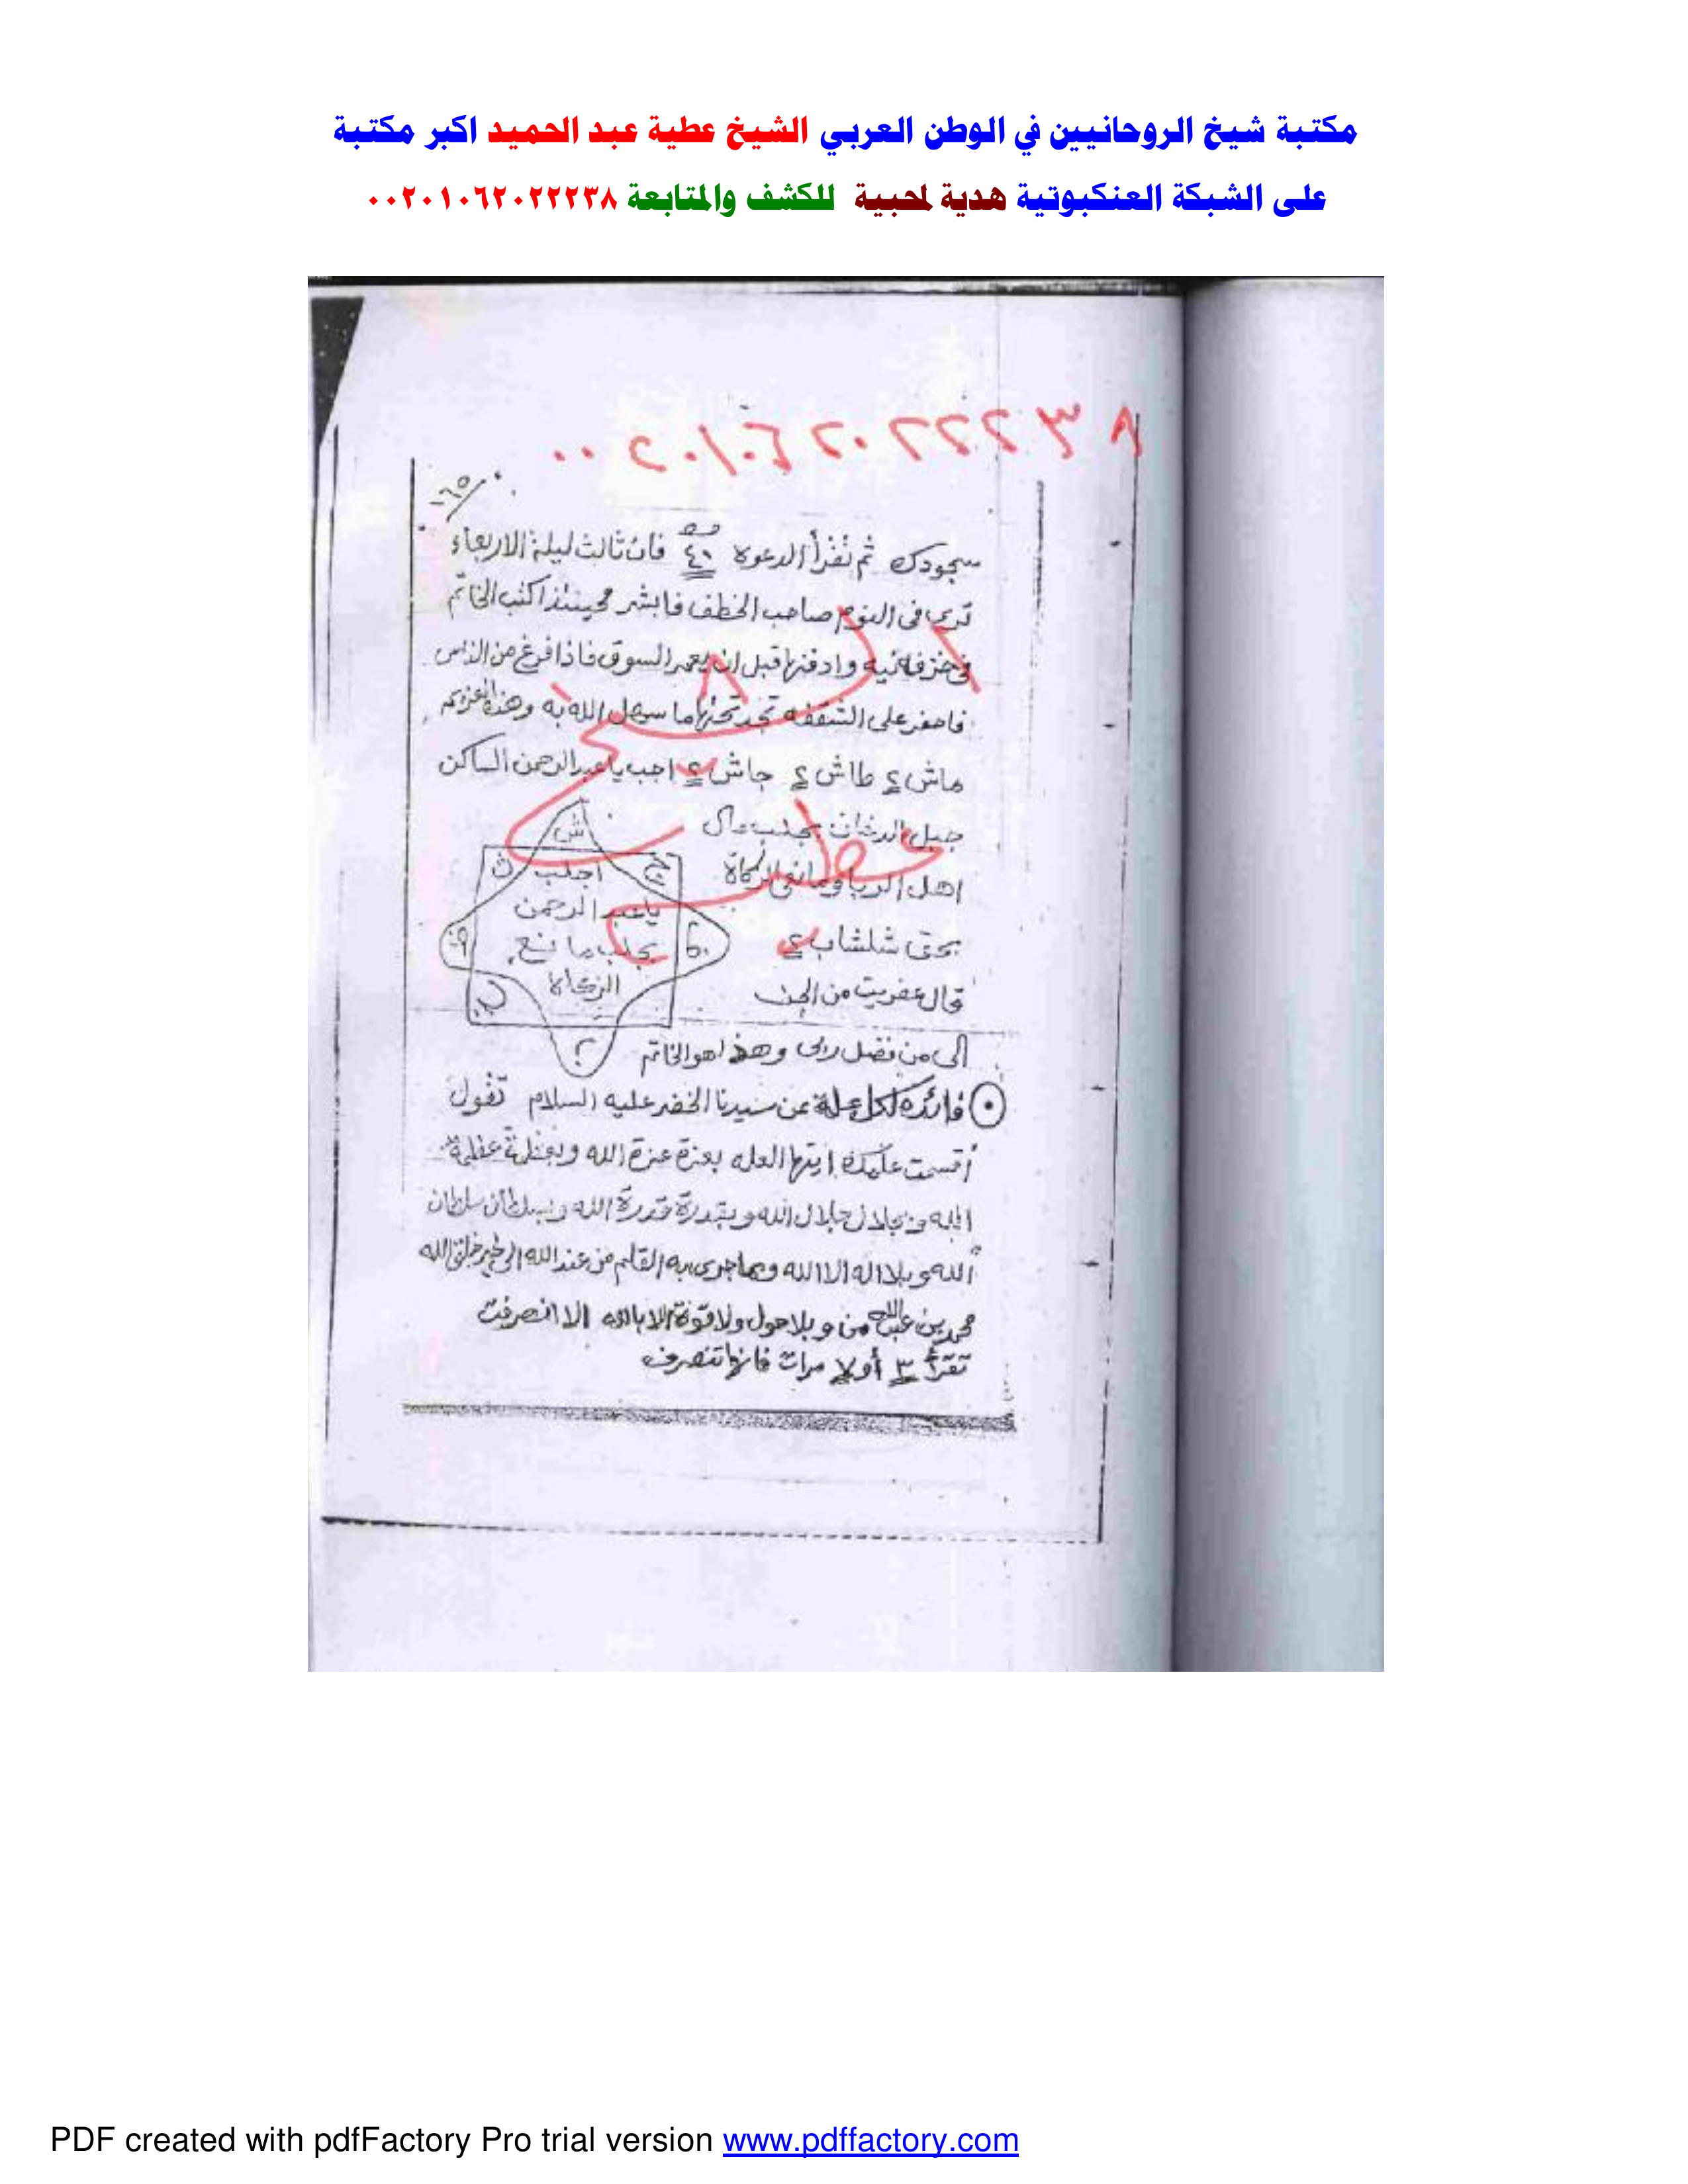 مكتبة شيخ الروحانيين في الوطن العربي الشيخ عطية عبد الحميد اكبر مكتبة
على الشبكة العنكبوتية هدية لمحبية للكشف والمتابعة ٠٠٢٠١٠٦٢٠٢٢٢٣٨
٠٠٢٠١٠٦٢٠٢٢٢٣٨
سجودك ثم تقرأ الدعوة ٤٠ فان ثالث ليلة الاربعاء
ترى فى النوم صاحب الخطف فابشر فحينئذ اكتب الخاتم
وادفنها قبل ان يعمر السوق فاذا فرغ من الناس
فاحفر على الشقفه تجد تحتها ما سهل الله به وهذه العزيمه
ماش ٤ طاش ٤ جاش ٤ اجب يا عبد الرحمن الساكن
جبل الدخان بجلب مال
اهل الربا ومانعى الزكاة
بحق شلشاب ٤
قال عفريت من الجن
الى من فضل ربى وهذا هو الخاتم
ش
ج
ث
اجلب
يا عبد الرحمن
بجلب ما نع
الزكاة
⊙ فائدة لكل علة عن سيدنا الخضر عليه السلام تقول
أقسمت عليك ايتها العله بعزة عزة الله وبعظمة عظمة
الله وبجلال جلال الله وبقدرة قدرة الله وبسلطان سلطان
الله وبلا اله الا الله وبما جرى به القلم من عند الله الى خير خلق الله
محمد بن عبد الله من وبلا حول ولا قوة الا بالله الا انصرفت
تقرأ ٣ أو ٧ مرات فانها تنصرف
PDF created with pdfFactory Pro trial version www.pdffactory.com